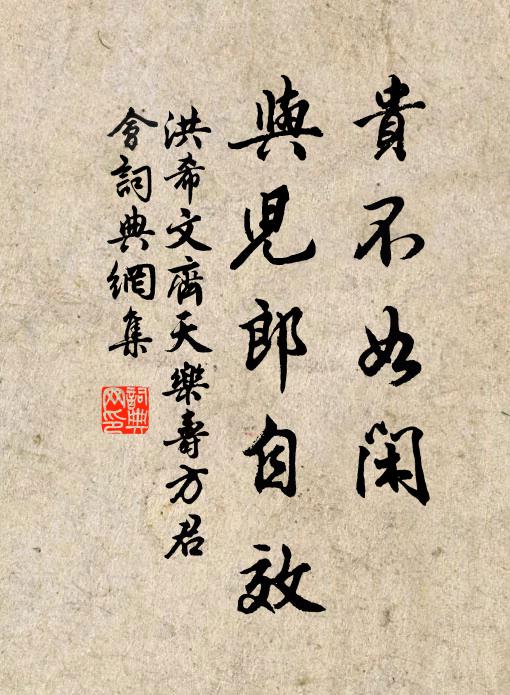 貴不如閑
與児郎自效
洪希文齊天樂壽方君
會詞典網集
詞典
网印